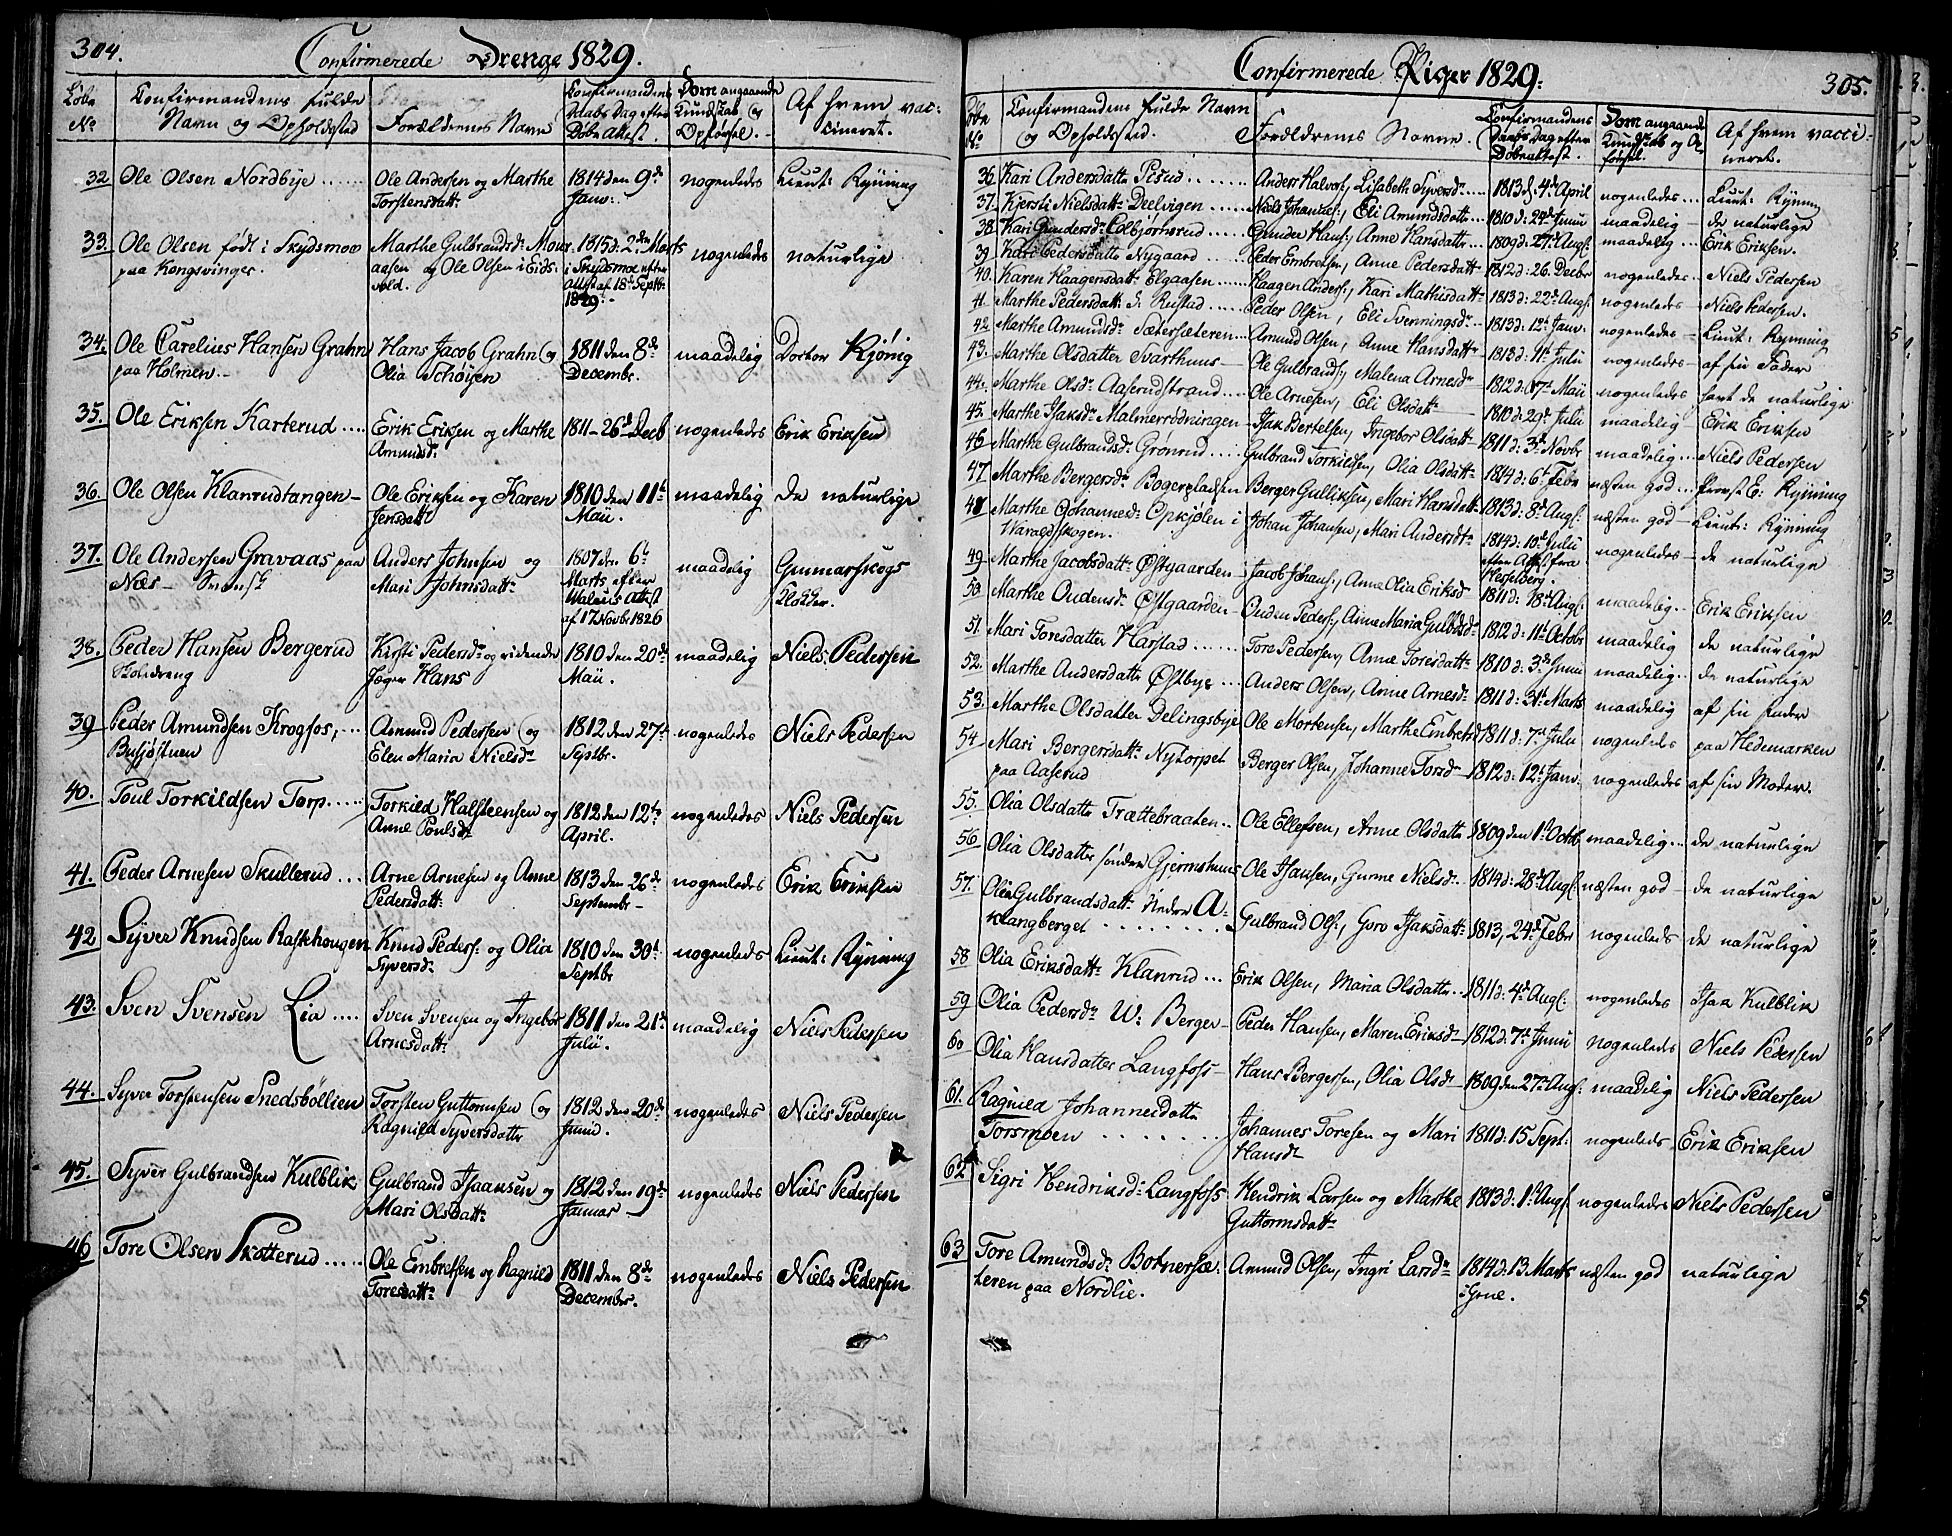 304.
Confirmerede Drenge 1829.
Løbe No
Confirmandens fulde Navn og Opholdsted
Forældrenes Navn
Confirmandens Daabs Dag efter Døbe Attest.
Dom angaaende Kundskab og Opførsel.
Af hvem vaccineret.
32 Ole Olsen Nordbye ...... Ole Andersen og Marthe 1814 den 9de nogenledes Lieut: Rynning
Torstensdatt: Janv:
33. Ole Olsen født i Skydsmoe Marthe Gulbrandsd: Moer- 1815 d. 2den Marts nogenledes naturlige
paa Kongsvinger. aasen og Ole Olsen i Eids- i Skydsmoe efter
vold. Attest af 18de Septb:
1829.
34. Ole Carelius Hansen Grahn Hans Jacob Grahn og 1811 den 8de maadelig Doctor Kjønig
paa Holmen. Olia Schøyen Decembr.
35. Ole Eriksen Karterud ..... Erik Eriksen og Marthe 1811 - 26d Decb nogenledes Erik Eriksen
Amundsd:
36. Ole Olsen Klanrudtangen - Ole Eriksen og Karen 1810 den 11te maadelig De naturlige
Jensdatt: Maii.
37. Ole Andersen Gravaas paa Anders Johnsen og 1807 den 6te maadelig Gunnarskogs
Næs - Mari Johnsdatt: Marts efter Klokker.
Attest
af 17 Novbr 1826
38. Peder Hansen Bergerud Kirsti Pedersd: og ridende 1810 den 20de maadelig Niels Pedersen
Jæger Hans Maii.
39 Peder Amundsen Krogfos, ... Amund Pedersen og 1812 den 27de nogenledes Niels Pedersen
Elen Maria Nielsd: Septbr.
40. Poul Torkildsen Torp ..... Torkild Halfsteensen og 1812 den 12te nogenledes Niels Pedersen
Anne Poulsdt: April.
41. Peder Arnesen Skullerud ... Arne Arnesen og Anne 1813 den 26de nogenledes Erik Eriksen
Pedersdatt: Septembr -
42 Syver Knudsen Raskehougen Knud Peders: og Olia 1810 den 30te nogenledes Lieut: Rynning
Syversd: Septbr
43. Sven Svensen Lia .... Sven Svensen og Ingebor 1811 den 21de maadelig Niels Pedersen
Arnesdatt: Julii.
44. Syver Torstensen Snedsböllien Torsten Guttormsen og 1812 den 20de nogenledes Niels Pedersen
Ragnild Syversdatte Junii.
45. Syver Gulbrandsen Kulblik Gulbrand Isaaksen og 1812 den 19de nogenledes Niels Pedersen
Mari Olsdatt: Januar -
46 Tore Olsen Skotterud ..... Ole Embretsen og Ragnild 1811 den 8de nogenledes Niels Pedersen
Toresdatt: December.
Confirmerede Piger 1829.
305.
Løbe No
Confirmandens fulde Navn og Opholdsted.
Forældrenes Navne.
Confirmandens Daabs Dag efter Døbeattest.
Dom angaaende Kundskab og Opførsel
Af hvem vaccineret.
36 Kari Andersdatte Pisud ....... Anders Halvors:, Lisabeth Syversd: ..... 1813 d: 4de April nogenledes ... Lieut: Rynning
37. Kjersti Nielsdatt: Deelvigen ...... Niels Johanes:, Eli Amundsdatte ... 1810 d: 24de Junii maadelig - de naturlige
38. Kari Gundersd: Colbjörnsrud ...... Gunder Hans:, Anne Hansdatte ... 1809 d: 27de Augs: maadelig ... Erik Eriksen.
39 Kari Pedersdatte Nygaard ..... Peder Embretsen, Anne Pedersdatt: 1812 d: 26. Decbr nogenledes .. Niels Pedersen
40. Karen Haagensdatt: Elgaasen ...... Haagen Anders:, Kari Mathisdatt: 1813 d: 22de Augs: nogenledes - Niels Pedersen.
41. Marthe Pedersdatt: S. Rustad ..... Peder Olsen, Eli Svenningsd: ... 1813 d: 12te Janv: nogenledes - Lieut: Rynning
42 Marthe Amundsd: Sætersæteren ... Amund Olsen, Anne Hansdatt: 1813 d: 11te Julii nogenledes af sin Fader
43. Marthe Olsdatter Svarthuus - Ole Gulbrands:, Malena Arnesd: 1812 d: 17de Maii nogenledes havt de naturlige
44. Marthe Olsd: Aaserudstrand .... Ole Arnesen, Eli Olsdatt: 1810 d: 29de Julii maadelig - Erik Eriksen
45. Marthe Isaksd: Malmerrödningen - Isak Bertelsen, Ingebor Olsdatt: 1811 d: 3de Novbr maadelig ... Niels Pedersen
46 Marthe Gulbrandsd: Grönrud ..... Gulbrand Torkildsen, Olia Olsdatt: 1814 d: 6te Febr næsten god ... E: Rynning
47 Marthe Bergersd: Bogerpladsen Berger Gulliksen, Mari Hansdatt: 1813 d: 8de Augs: næsten god - Lieut: Rynning
48 Marthe Johannesd: Opkjølen i Johan Johansen, Mari Andersdt: 1814 d: 10de Julii nogenledes de naturlige
Varaldskogen. efter Attest fra
49 Marthe Jacobsdatt: Østgaarden - Jacob Johans:, Anne Olia Eriksd: 1811 d: 18de Augs: maadelig .. Erik Eriksen
50. Marthe Oudensd: Østgaarden - Ouden Peders:, Anne Maria Gulbrsd: 1812 d: 11te Octobr maadelig de naturlige
51. Mari Toresdatter Harstad ...... Tore Pedersen, Anne Toresdatt: 1810 d: 3de Junii maadelig .. de naturlige
52. Marthe Andersdatte Østbye ... Anders Olsen, Anne Arnesd: 1811 d: 31te Marts maadelig af sin Fader
53. Marthe Olsdatter Delingsbye Ole Mortensen, Marthe Embretsd 1811 d: 7de Julii nogenleds paa Hedemarken
54 Mari Bergersdatt: Nytorpet Berger Olsen, Johanne Torsd: - 1812 d: 12te Janv. nogenledes af sin Moder.
paa Aaserud
55. Olia Olsdatte Trættebraaten .. Ole Ellefsen, Anne Olsdatte 1809 den 1ste Octob maadelig ... de naturlige
56 Olia Olsdatter søndre Gjermshuus Ole Hansen, Gunne Nielsd: .. 1814 d: 28de Augs: næsten god - de naturlige
57. Olia Gulbrandsdatt: Nedre A- Gulbrand Ols:, Goro Isaksdatt: 1813, 24de Febr nogenleds de naturlige
klangberget ........
58 Olia Eriksdatt: Klanrud ... Erik Olsen, Maria Olsdatte .. 1811 d: 4de Augs: nogenledes Isak Kulblik
59 Olia Pedersd: W: Berger - Peder Hansen, Maren Eriksd: - 1812 d: 7de Junii nogenledes Niels Pedersen
60 Olia Hansdatter Langfoss - Hans Bergersen, Olia Olsd: - 1809 den 27de Augs: maadelig Niels Pedersen
61. Ragnild Johannesdatte
Torsmoen ....... Johannes Toresen og Mari 1811 d: 15 Sept: nogenleds Erik Eriksen
Hansd:
62 Sigri Hendriksd: Langfoss Hendrik Larsen og Marthe 1813 d: 1ste Augs nogenledes Niels Pedersen
Guttormsdatt:
63 Tore Amundsd: Botnersæ- Amund Olsen, Ingri Larsd: 1814 d: 13. Marts næsten god naturlige
teren paa Nordlie. i Grue.